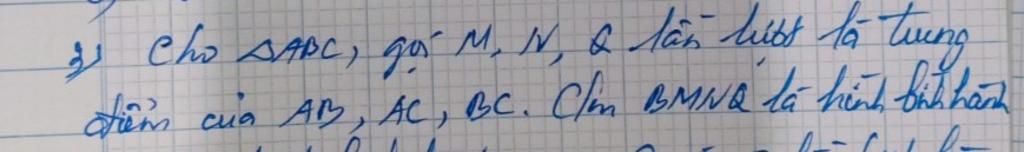 3) Cho △ABC, gọi M, N, Q lần lượt là trung
điểm của AB, AC, BC. C/m BMNQ là hình bình hành